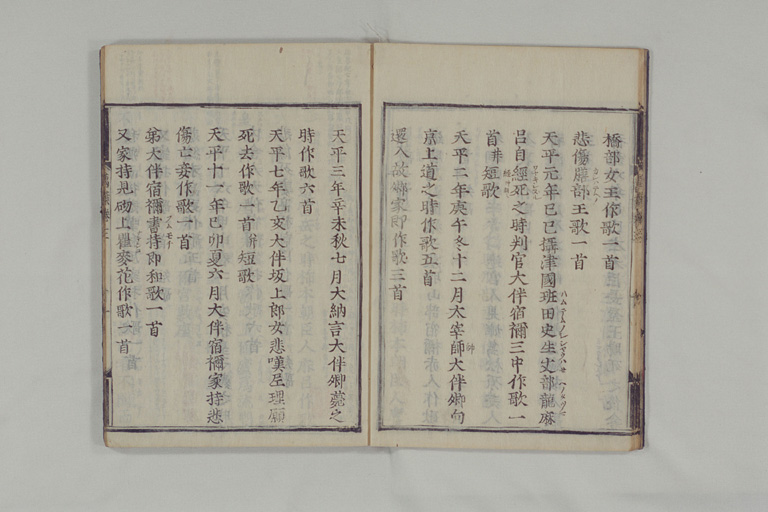 橋部女王作歌一首
悲傷膳部王歌一首
天平元年己巳攝津國班田史生丈部龍麻
呂自經死之時判官大伴宿禰三中作歌一
首并短歌
天平二年庚午冬十二月太宰師大伴卿向
京上道之時作歌五首
還入故郷家即作歌三首
天平三年辛未秋七月大納言大伴卿薨之
時作歌六首
天平七年乙亥大伴坂上郎女悲嘆尼理願
死去作歌一首并短歌
天平十一年己卯夏六月大伴宿禰家持悲
傷亡妾作歌一首
弟大伴宿禰書持即和歌一首
又家持見砌上瞿麥花作歌一首